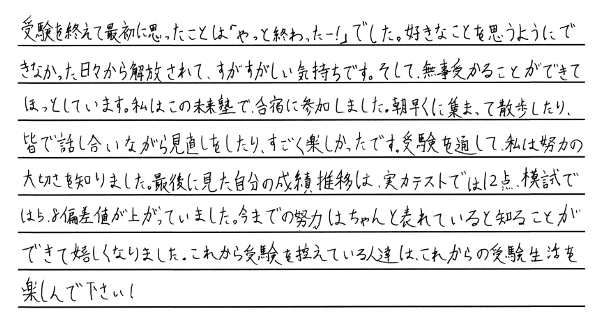 受験を終えて最初に思ったことは「やっと終わったー!」でした。好きなことを思うようにで
きなかった日々から解放されて、すがすがしい気持ちです。そして、無事受かることができて
ほっとしています。私はこの未来塾で、合宿に参加しました。朝早くに集まって散歩したり、
皆で話し合いながら見直しをしたり、すごく楽しかったです。受験を通して、私は努力の
大切さを知りました。最後に見た自分の成績推移は、実力テストでは12点、模試で
は5.8偏差値が上がっていました。今までの努力はちゃんと表れていると知ることが
できて嬉しくなりました。これから受験を控えている人達は、これからの受験生活を
楽しんで下さい!